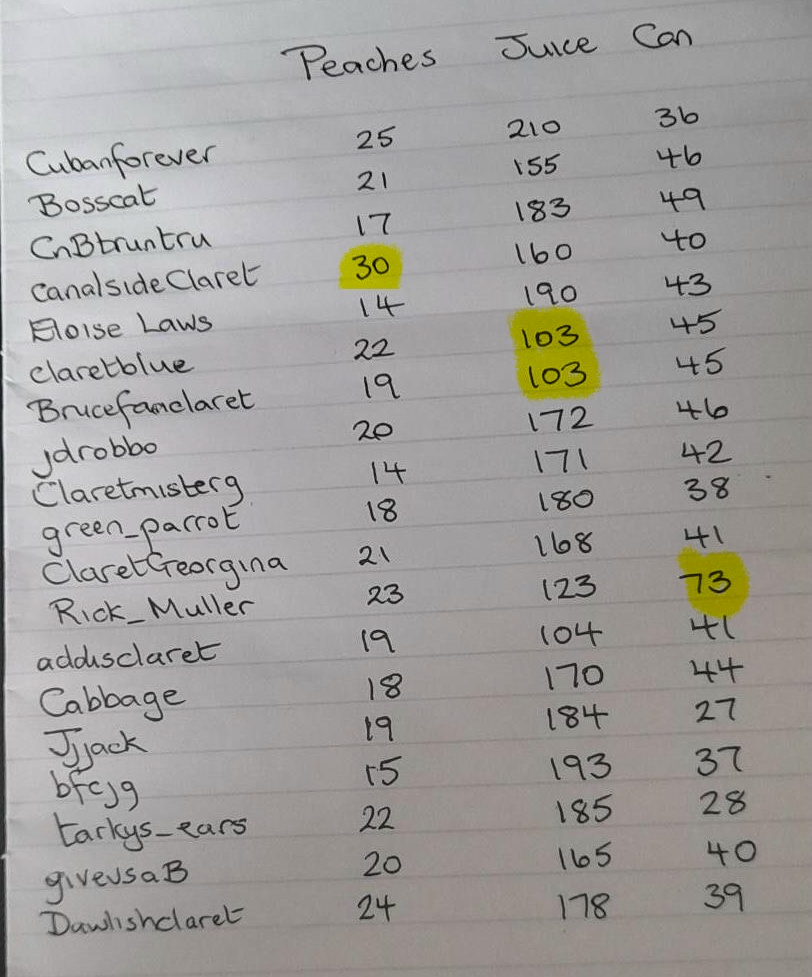 Peaches Juice Can
Cubanforever 25 210 36
Bosscat 21 155 46
CnBtruntru 17 183 49
CanalsideClaret 30 160 40
Eloise Laws 14 190 43
claretblue 22 103 45
Brucefanclaret 19 103 45
jdrobbo 20 172 46
Claretmisterg 14 171 42
green_parrot 18 180 38
ClaretGeorgina 21 168 41
Rick_Muller 23 123 73
addisclaret 19 104 41
Cabbage 18 170 44
Jjjack 19 184 27
bfcjg 15 193 37
tarkys_ears 22 185 28
giveusaB 20 165 40
Dawlishclaret 24 178 39